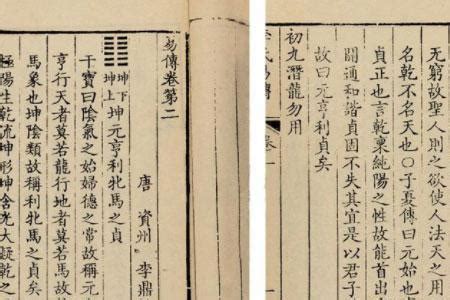 无窮故聖人則之欲使人法天之用
名乾不名天也〇子夏傳曰元始也
貞正也言乾稟純陽之性故能首出
開通和諧貞固不失其宜是以君子
故曰元亨利貞矣
初九潛龍勿用
易傳卷第二
唐 資州 李鼎
䷁ 坤下 坤上 坤元亨利牝馬之貞
干寶曰陰氣之始婦德之常故稱元
亨行天者莫若龍行地者莫若馬故
馬象也坤陰類故稱利牝馬之貞矣
極陽生乾流坤形坤含光大凝乾之